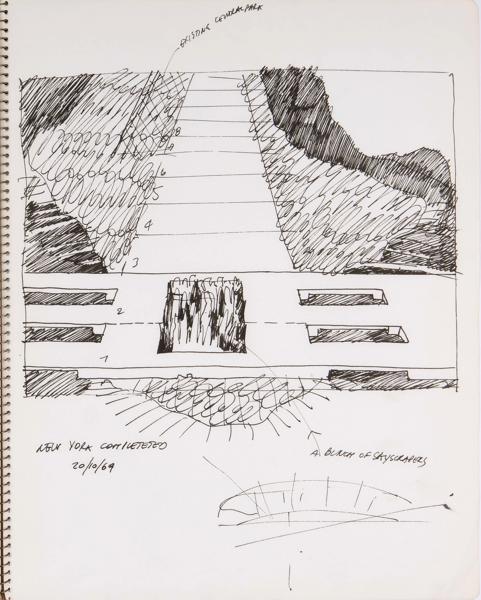 EXISTING CENTRAL PARK
8
6
5
4
3
2
1
NEW YORK COMPLETETED
20/10/69
A BUNCH OF SKYSCRAPERS